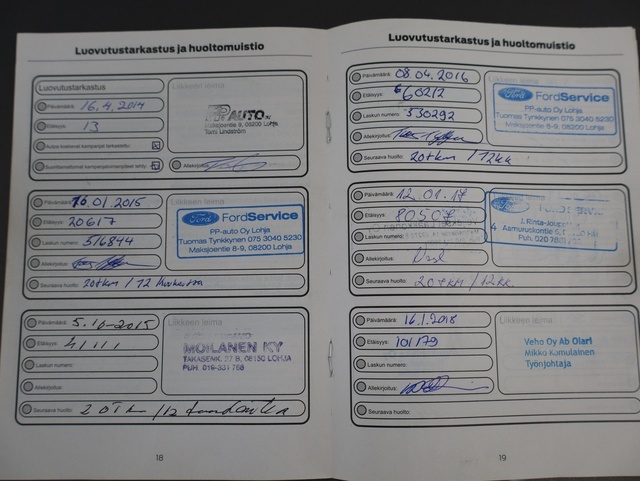 Luovutustarkastus ja huoltomuistio
Luovutustarkastus
Päivämäärä: 16.4.2014
Etäisyys: 13
Autoa koskevat kampanjat tarkastettu
Suoritettavat kampanjatoimenpiteet tehty
Liikkeen leima
PP AUTO OY
Maksjoentie 9, 08200 Lohja
Tomi Lindström
Allekirjoitus:
Päivämäärä: 16.01 2015
Etäisyys: 20617
Laskun numero: 516844
Allekirjoitus:
Seuraava huolto: 20tkm / 12 kuukautta
Liikkeen leima
Ford FordService
PP-auto Oy Lohja
Tuomas Tynkkynen 075 3040 5230
Maksjoentie 8-9, 08200 LOHJA
Päivämäärä: 5.10-2015
Etäisyys: 41111
Laskun numero:
Allekirjoitus:
Seuraava huolto: 20Tkm / 12 kuukautta
Liikkeen leima
MOILANEN KY
TAKASENK. 27 B, 08150 LOHJA
PUH. 019-331 768
18
Luovutustarkastus ja huoltomuistio
Päivämäärä: 08 04. 2016
Etäisyys: 60212
Laskun numero: 530292
Allekirjoitus:
Seuraava huolto: 20tkm / 12kk
Ford FordService
PP-auto Oy Lohja
Tuomas Tynkkynen 075 3040 5230
Maksjoentie 8-9, 08200 LOHJA
Päivämäärä: 12.01.17
Etäisyys: 80507
Laskun numero:
Allekirjoitus:
Seuraava huolto: 20tkm / 12kk.
Ford
Puh. 020
Päivämäärä: 16.1.2018
Etäisyys: 101179
Laskun numero:
Allekirjoitus:
Seuraava huolto:
Liikkeen leima
Veho Oy Ab Olari
Mikko Komulainen
Työnjohtaja
19